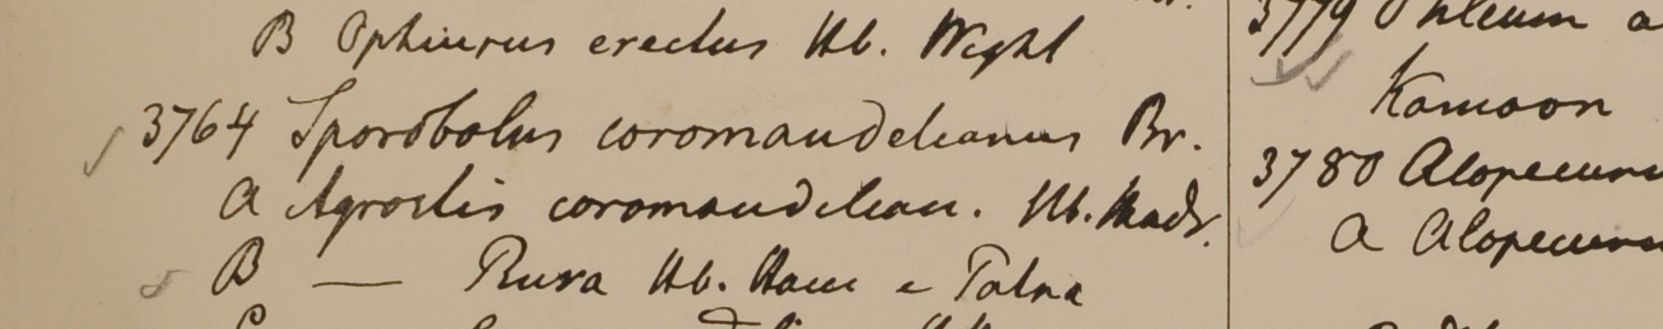 B Ophiurus erectus Hb. Wight
3764 Sporobolus coromandelianus Br.
a Agrostis coromandelian. Hb. Madr.
B — Rura Hb. Ham e Patna
3779 Phleum a
Kamaon
3780 Alopecuru
a Alopecuru